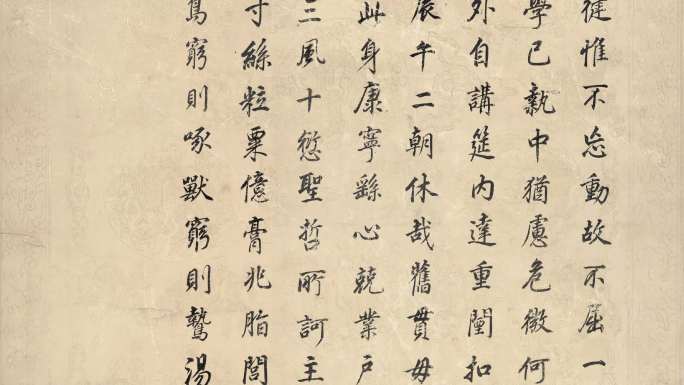 從惟不忘動故不屈一
學已執中猶慮危微何
外自講筵内達重闈扣
辰午二朝休哉舊貫毋
此身康寧繇心兢業戶
三風十愆聖哲所訶主
寸絲粒粟億膏兆脂閭
鳥窮則啄獸窮則鷙湯